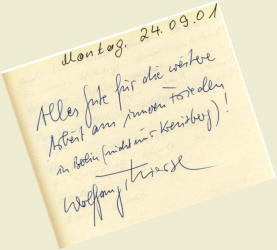 Montag, 24.09.01
Alles Gute für die weitere
Arbeit am inneren Frieden
in Berlin (nicht nur Kreuzberg)!
Wolfgang Thierse